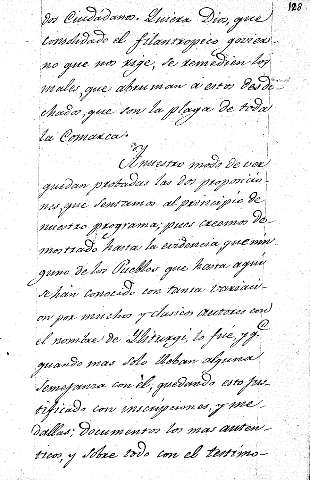 128
dos Ciudadanos. Quiera Dios, que
consolidado el filantropico govier-
no que nos rige, se remedien los
males, que abruman a estos desde-
chados, que son la plaga de toda
la Comarca.
A nuestro modo de ver
quedan probadas las dos proposicio-
nes, que sentamos al principio de
nuestro programa; pues creemos de-
mostrado hasta la evidencia, que nin-
guno de los Pueblos que hasta aquí
se han conocido con tanta variaci-
on por muchos y clasicos autores con
el nombre de Iliturgi, lo fué, y qe
quando mas solo lleban alguna
semejanza con él, quedando esto jus-
tificado con inscripciones, y me-
dallas; documentos los mas auten-
ticos, y sobre todo con el testimo-